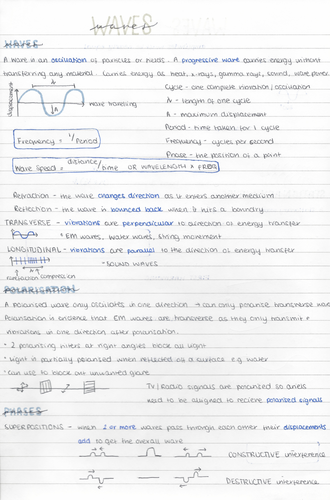 WAVES
waves
WAVES
A wave is an oscillation of particles or fields. A progressive wave carries energy without
transferring any material. Carries energy as heat, x-rays, gamma rays, sound, wave power
Cycle - one complete vibration/oscillation
displacement
λ
wave travelling
λ - length of one cycle
A - maximum displacement
Period - time taken for 1 cycle
Frequency = 1/Period
Frequency - cycles per second
Phase - the position of a point
Wave Speed = distance/time OR WAVELENGTH x FREQ
Refraction - the wave changes direction as it enters another medium
Reflection - the wave is bounced back when it hits a boundry
TRANSVERSE - vibrations are perpendicular to direction of energy transfer
* EM waves, water waves, string movement
LONGITUDINAL - vibrations are parallel to the direction of energy transfer
* SOUND WAVES
rarefaction compression
POLARISATION
A polarised wave only oscillates in one direction → can only polarise transverse waves
Polarisation is evidence that EM waves are transverse as they only transmit
vibrations in one direction after polarisation.
· 2 polarising filters at right angles block all light
· Light is partially polarised when reflected off a surface e.g. water
· can use to block out unwanted glare
TV/Radio signals are polarised so aerials
need to be aligned to recieve polarised signals
PHASES
SUPERPOSITIONS - when 2 or more waves pass through each other their displacements
add to get the overall wave
CONSTRUCTIVE interference
DESTRUCTIVE interference